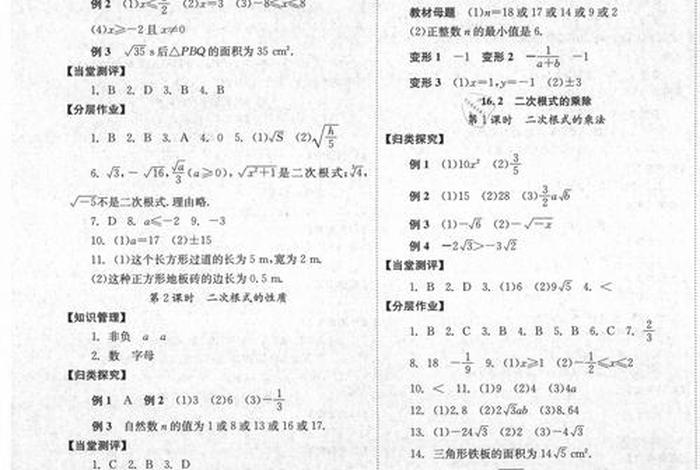 例2 (1)x≤3/2 (2)x=3 (3)-8≤x≤8
(4)x≥-2且x≠0
例3 √35 s后△PBQ的面积为35 cm².
【当堂测评】
1. B 2. D 3. B 4. B
【分层作业】
1. B 2. B 3. A 4. 0 5. (1)√S (2)√(h/5)
6. √3,-√16,√a/3(a≥0),√(x²+1)是二次根式;∛4,
√-5不是二次根式.理由略.
7. D 8. a≤-2 9. -3
10. (1)a=17 (2)±15
11. (1)这个长方形过道的长为5 m,宽为2 m.
(2)这种正方形地板砖的边长为0.5 m.
第2课时 二次根式的性质
【知识管理】
1. 非负 a a
2. 数 字母
【归类探究】
例1 A 例2 (1)3 (2)6 (3)-1/3
例3 自然数n的值为1或8或13或16或17.
【当堂测评】
1. C 2. B 3. D
教材母题 (1)n=18或17或14或9或2
(2)正整数n的最小值是6.
变形1 -1 变形2 -1/(a+b) -1
变形3 (1)x=1,y=-1 (2)±3
16.2 二次根式的乘除
第1课时 二次根式的乘法
【归类探究】
例1 (1)10x² (2)3/5
例2 (1)15 (2)28 (3)3/2 a√b
例3 (1)-√6 (2)-√-x
例4 -2√3>-3√2
【当堂测评】
1. B 2. D 3. (1)6 (2)9√5 4. <
【分层作业】
1. B 2. C 3. B 4. B 5. B 6. C 7. 2/3
8. 18 -1/9 9. (1)x≥1 (2)-1/2≤x≤2
10. < 11. (1)9 (2)4 (3)4a
12. (1)2.8 (2)2√3ab (3)8.64
13. (1)-24√3 (2)2 (3)-4√3
14. 三角形铁板的面积为14√5 cm².